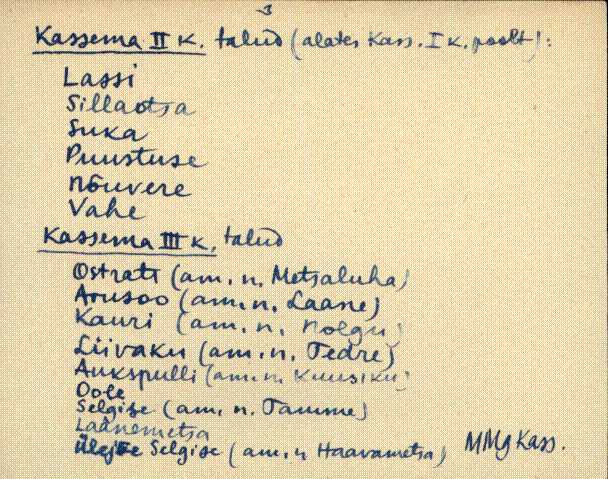 3
Kassema II k. talud (alates Kass. I k. poolt):
Lassi
Sillaotsa
Suka
Puustuse
Nõuvere
Vahe
Kassema III k. talud
Ostrati (am. n. Metsaluha)
Arusoo (am. n. Laane)
Kauri (am. n. Nolgu)
Liivaku (am. n. Tedre)
Aukspulli (am. n. Kuusiku)
Oole
Selgise (am. n. Tamme)
Läänemetsa
Selgise (am. n Haavametsa) MMg Kass.